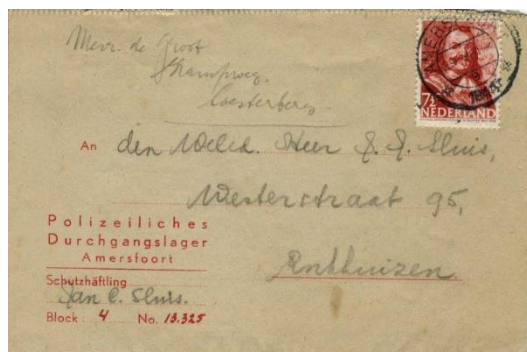 Mevr. de Groot
Kampweg.
Soesterberg
7½
NEDERLAND
An den Weled. Heer J. J. Sluis,
Westerstraat 95,
Enkhuizen.
Polizeiliches
Durchgangslager
Amersfoort
Schutzhäftling
Jan C. Sluis.
Block: 4 No. 13.325